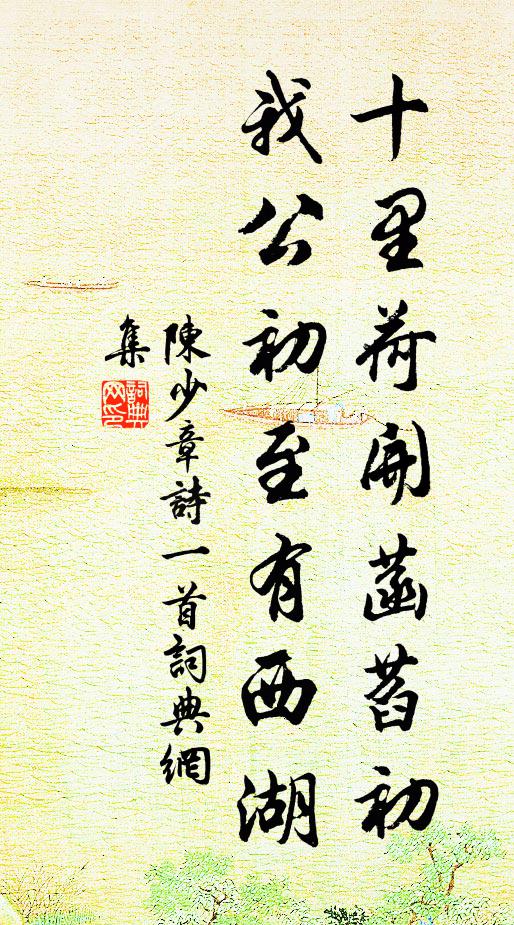 十里荷開菡萏初
我公初至有西湖
陳少章詩一首詞典網
集
詞典
网印